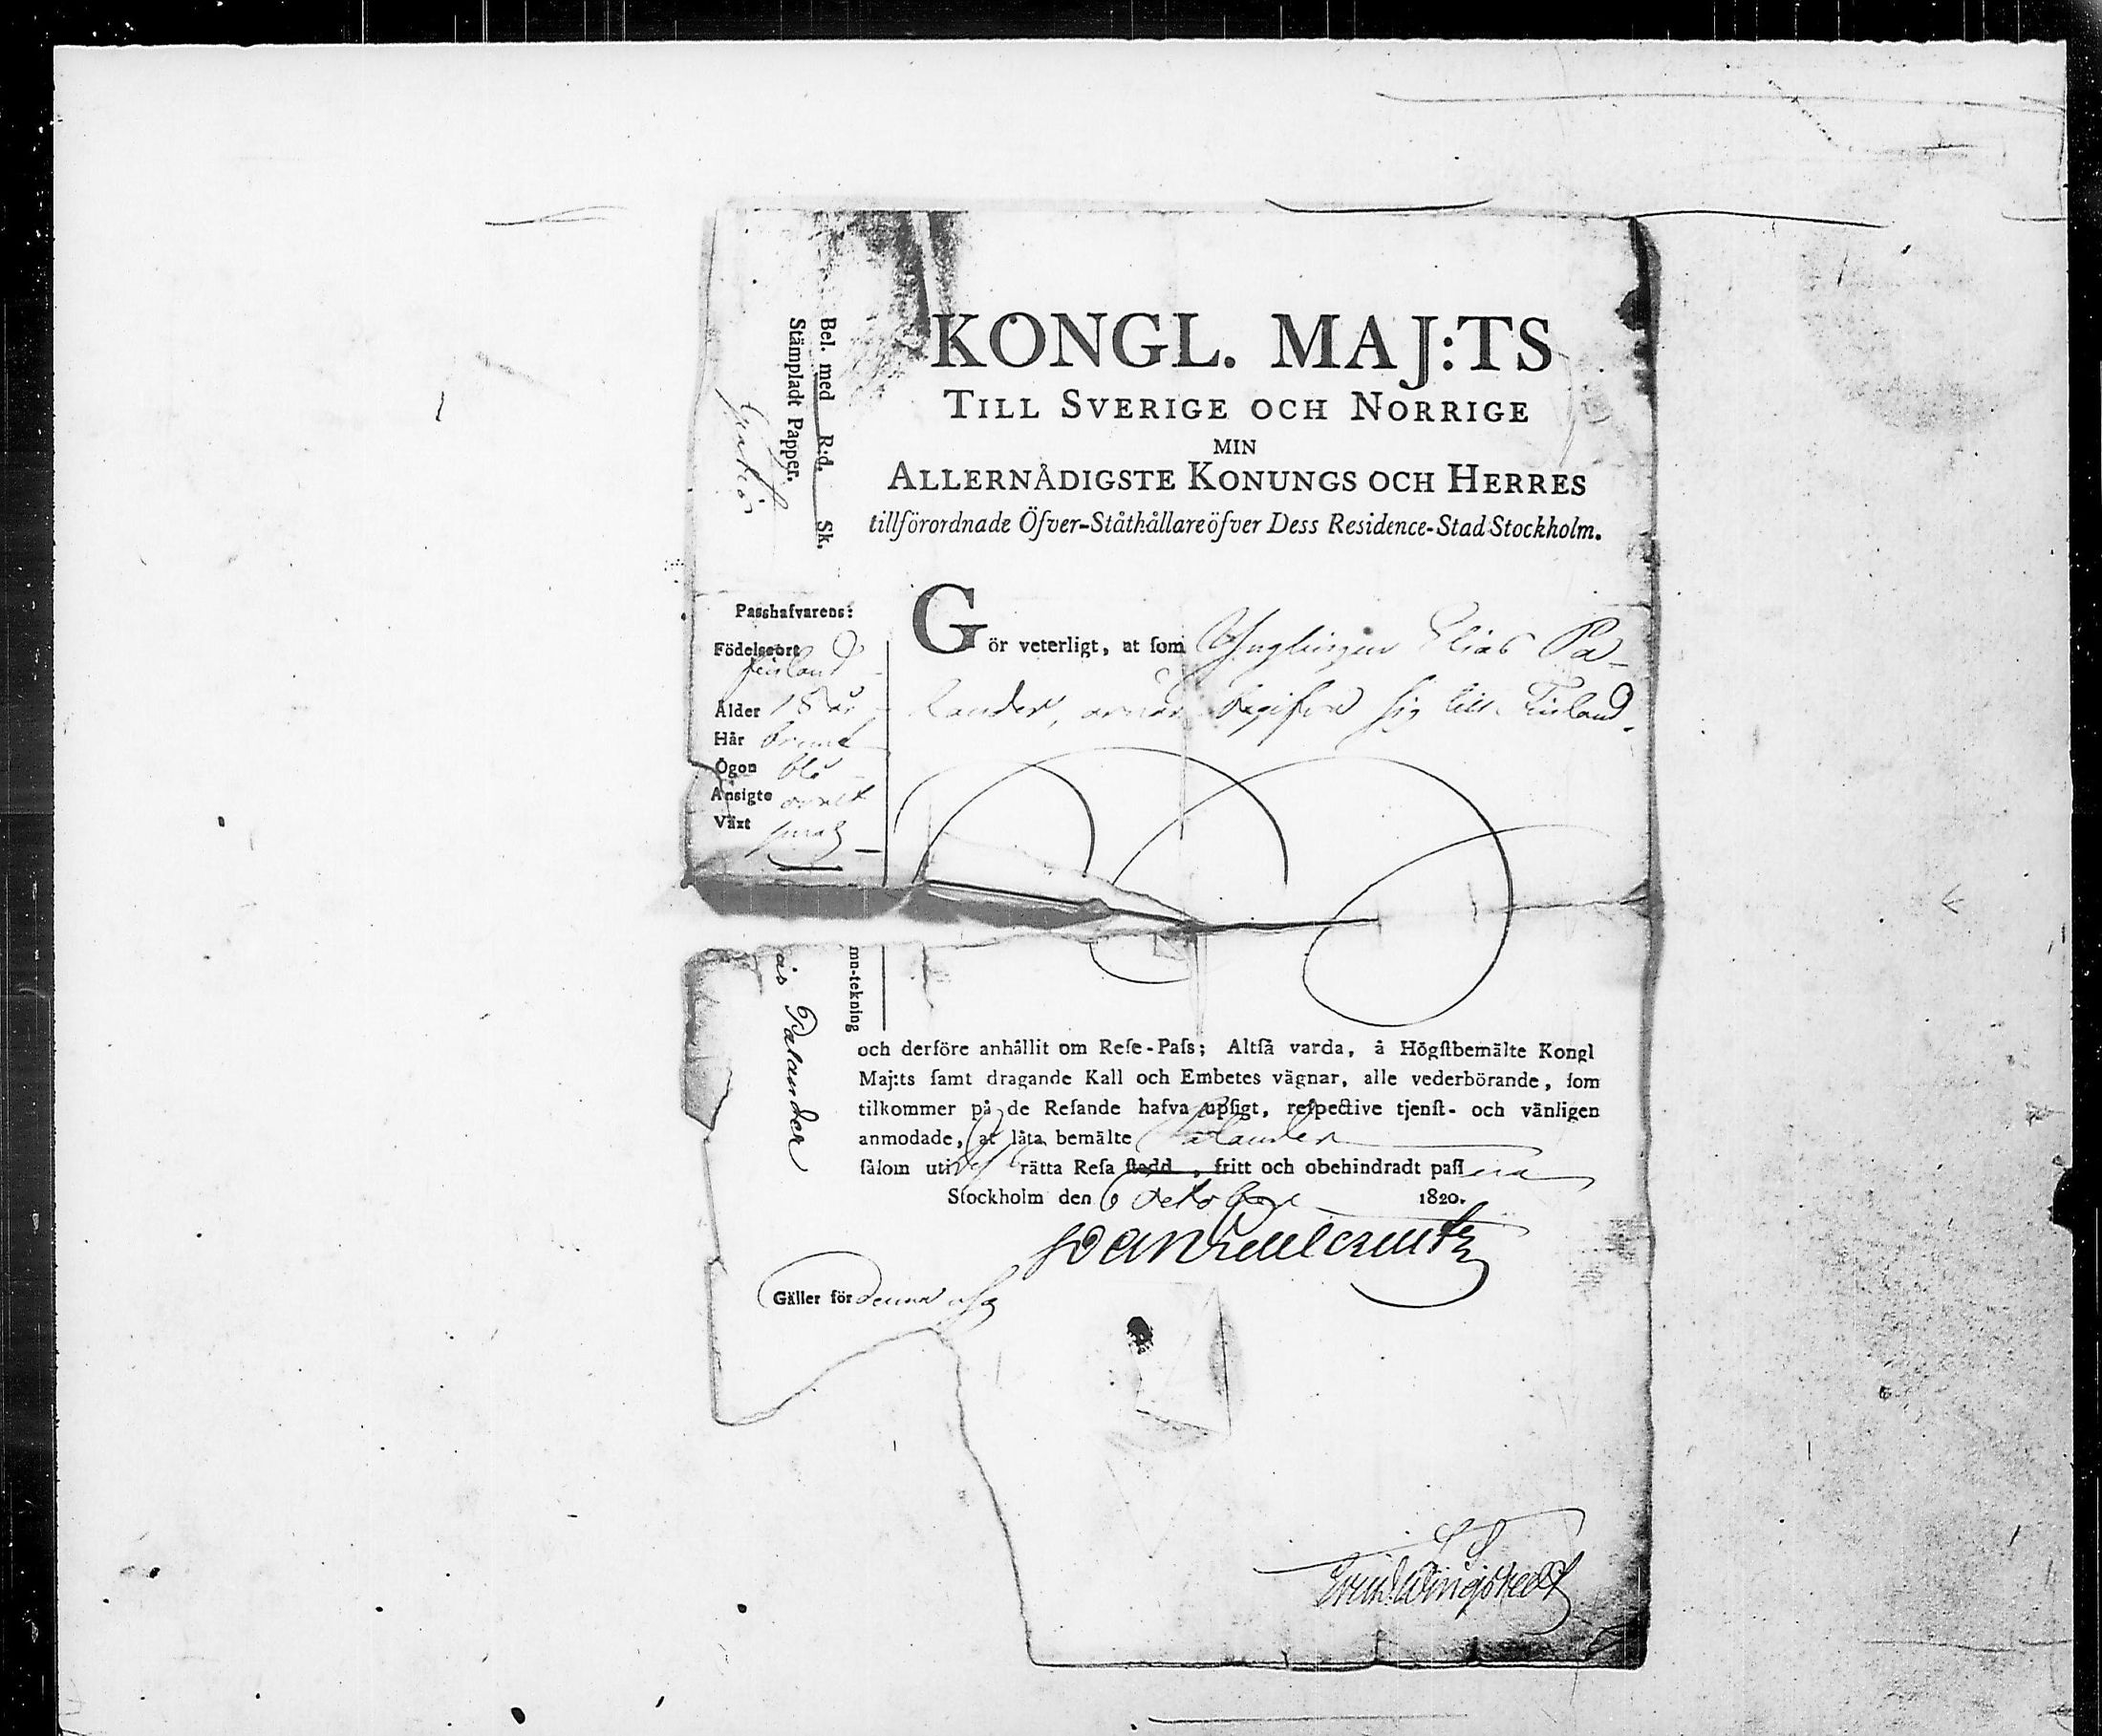 Bel. med R:d. Sk.
Stämpladt Papper.
Gratis
KONGL. MAJ:TS
TILL SVERIGE OCH NORRIGE
MIN
ALLERNÅDIGSTE KONUNGS OCH HERRES
tillförordnade Öfver-Ståthållare öfver Dess Residence-Stad Stockholm.
Passhafvarens:
Födelseort
finland
Ålder 18 år
Hår brunt
Ögon blå
Ansigte ovalt
Växt smal
Gör veterligt, at ſom Ynglingen Elias Pa-
lander, ärnar begifva sig till Finland.
mn-tekning
as Palander
och derföre anhållit om Reſe-Paſs; Altſå varda, å Högſtbemälte Kongl
Maj:ts ſamt dragande Kall och Embetes vägnar, alle vederbörande, ſom
tilkommer på de Reſande hafva upſigt, reſpective tjenſt- och vänligen
anmodade, at låta bemälte Palander
ſåſom uti dess rätta Reſa ſtadd, fritt och obehindradt paſſera
Stockholm den 6 October 1820.
Gäller för denna resa